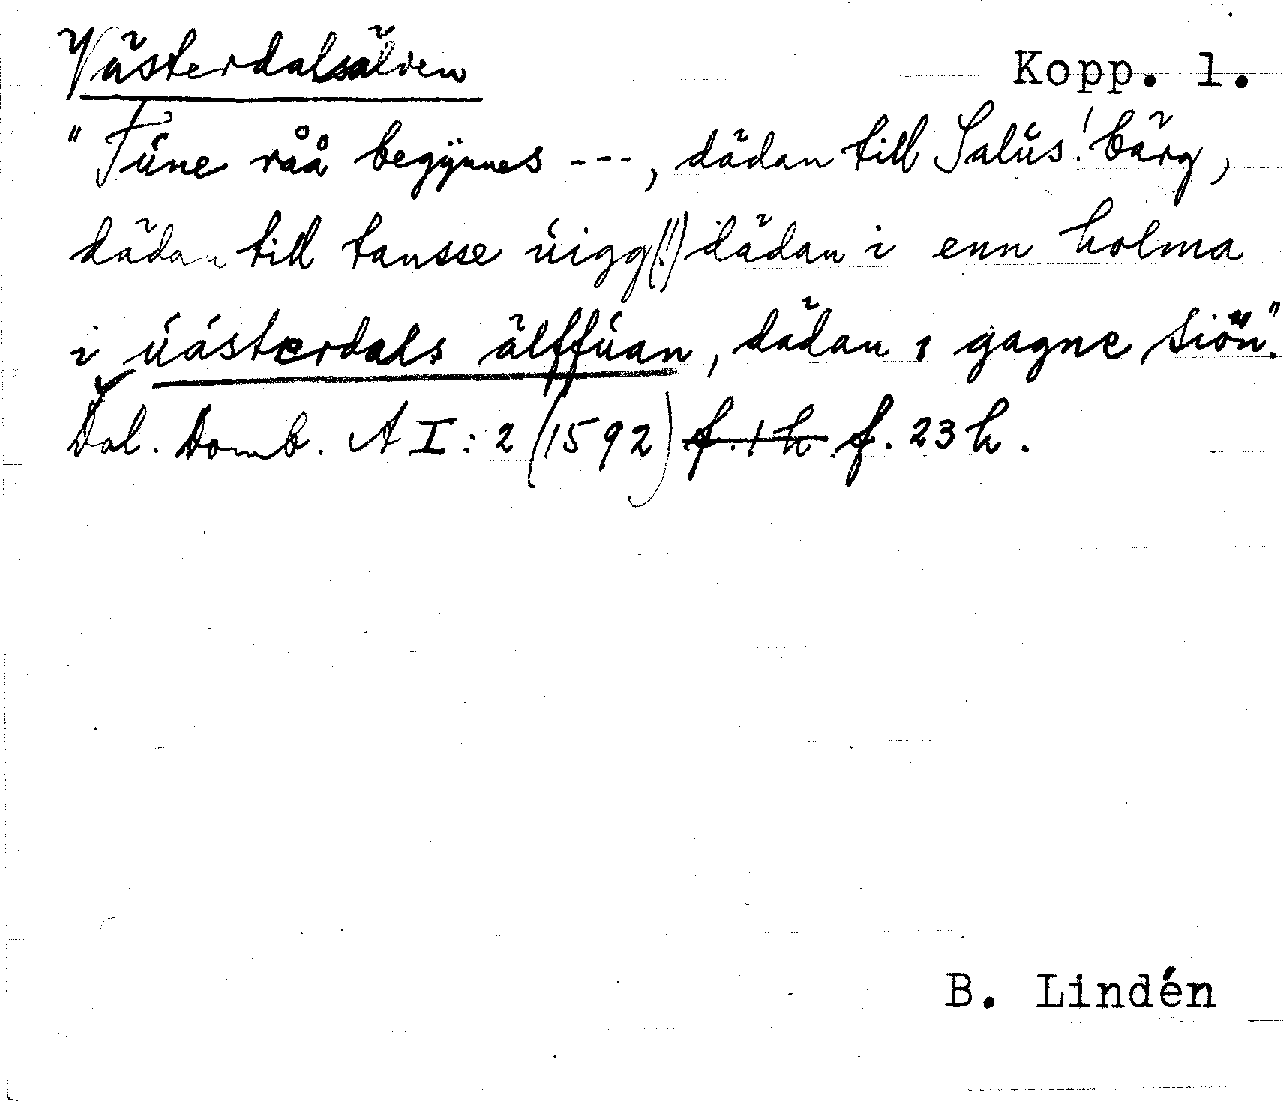 Västerdalsälven
Kopp. l.
"Túne råå begÿnnes ---, dädan till Salús! bärg,
dädan till tansse úigg(!) dädan i enn holma
i úästerdals älffúan, dädan i gagne siön".
Dal. Domb. A I: 2 (1592) f. 1 h f. 23 h.
B. Lindén